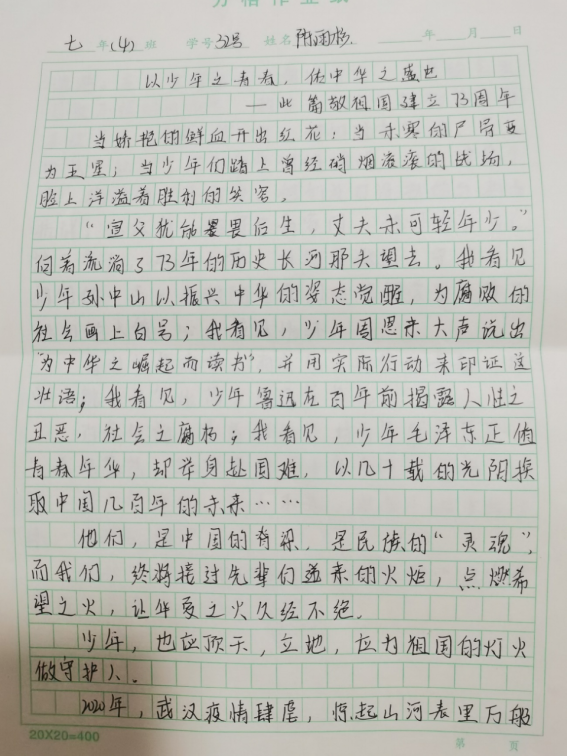 方格作业纸
七 年(4)班 学号32号 姓名 陈雨杉 年 月 日
以少年之青春，佑中华之盛世
——此篇敬祖国建立73周年
当娇艳的鲜血开出红花；当未寒的尸骨里
为玉星；当少年们踏上曾经硝烟滚滚的战场，
脸上洋溢着胜利的笑容。
“宣父犹能畏后生，丈夫未可轻年少。”
向着流淌了73年的历史长河那头望去。我看见
少年孙中山以振兴中华的姿态觉醒，为腐败的
社会画上句号；我看见，少年周恩来大声说出
“为中华之崛起而读书”，并用实际行动来印证这
壮语；我看见，少年鲁迅在百年前揭露人性之
丑恶，社会之腐朽；我看见，少年毛泽东正值
青春年华，却举身赴国难，以几十载的光阴换
取中国几百年的未来……
他们，是中国的脊梁，是民族的“灵魂”，
而我们，终将接过先辈们递来的火炬，点燃希
望之火，让华夏之火久经不绝。
少年，也应顶天，立地，应为祖国的灯火
做守护人。
2020年，武汉疫情肆虐，惊起山河表里万般
20X20=400
第 页